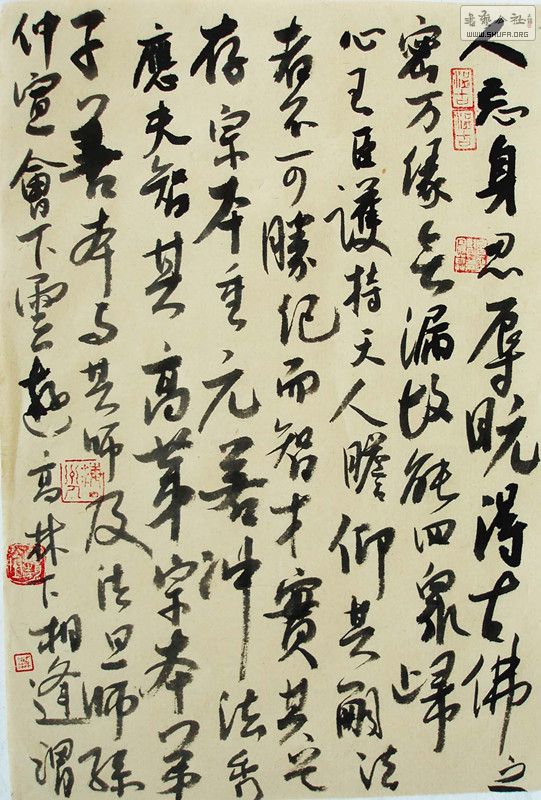 人忘身忍辱既得古佛之
密万缘无漏故能四众归
心王臣护持天人瞻仰其嗣法
者不可胜纪而智才赏其
存宗本重元善冲法秀
應夫智其高弟宗本弟
子善本与其师及法旦師孫
仲宣會下雲遊高林下相逢謂
書法公社
WWW.SHUFA.ORG